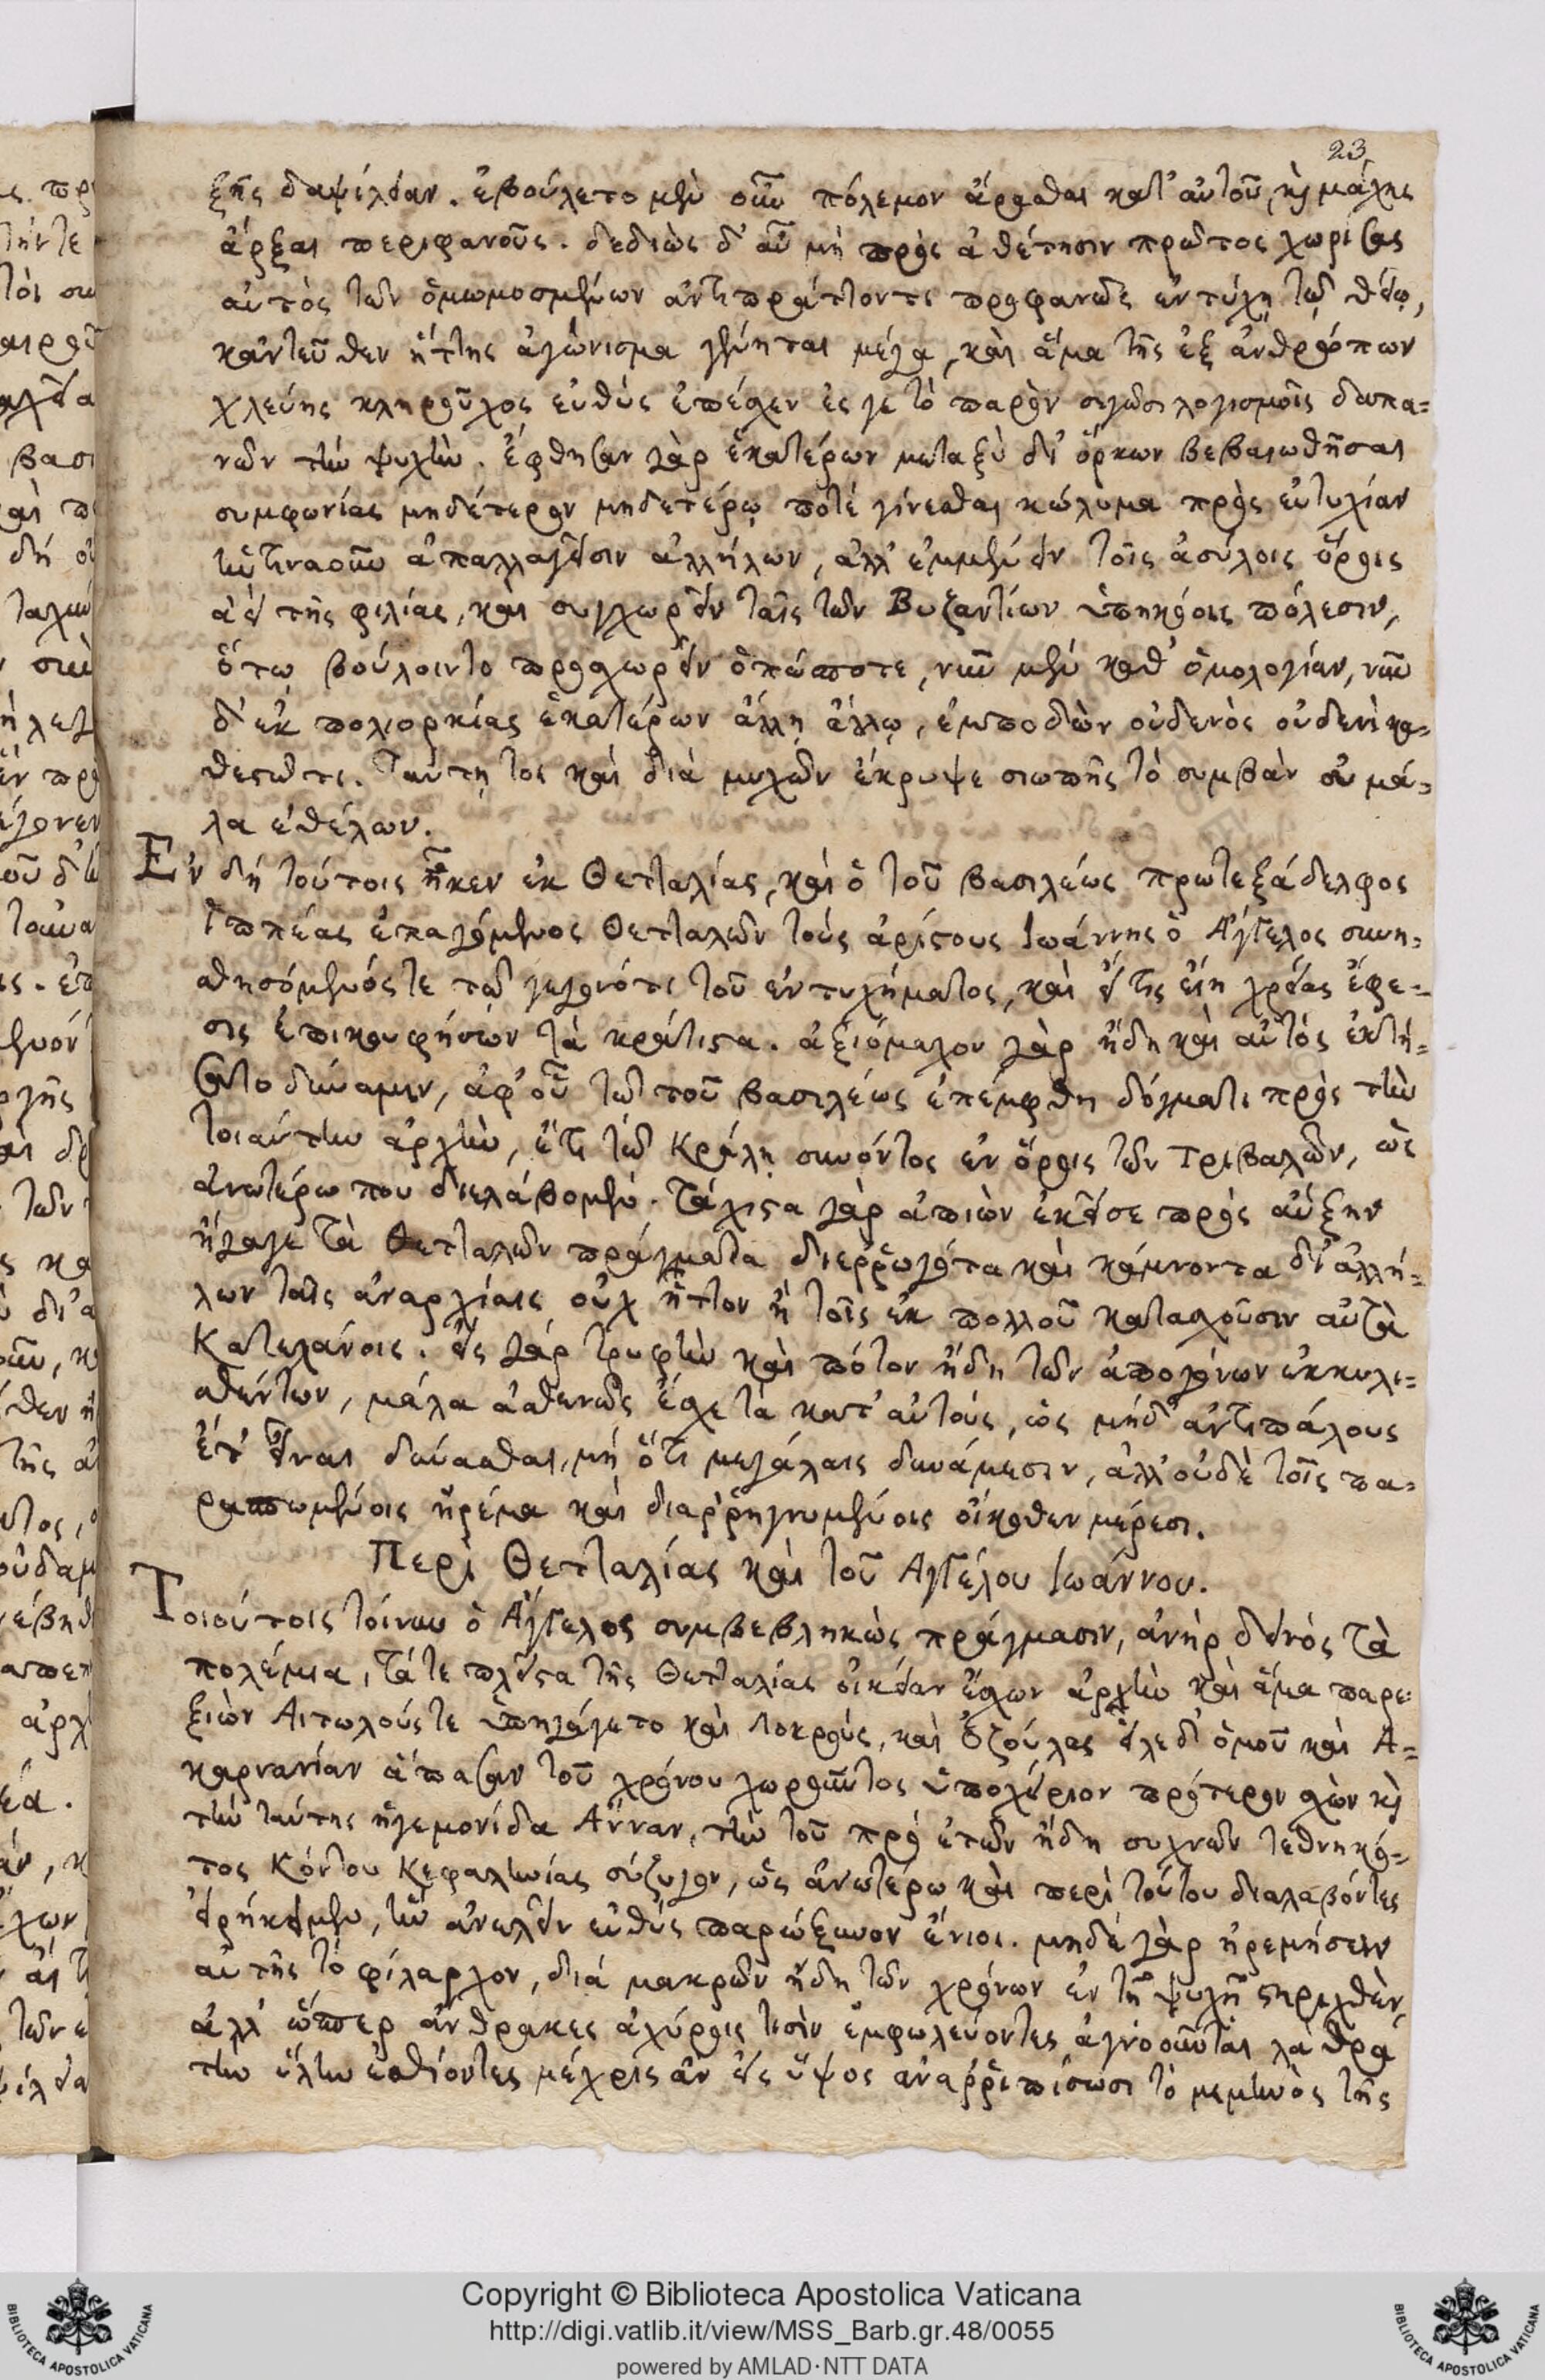 23
ξῆς δαψίλειαν. ἐβούλετο μὲν οὖν πόλεμον ἄρασθαι κατ' αὐτοῦ, καὶ μάχης
ἄρξαι περιφανοῦς. δεδιὼς δ' αὖ μὴ πρὸς ἀθέτησιν πρῶτος χωρίσας
αὐτὸς τῶν ὀμωμοσμένων ἀντιπράττοντι προφανῶς ἐντύχῃ τῷ θείῳ,
κἀντεῦθεν ἥττης ἀγώνισμα γένηται μέγα, καὶ ἅμα τῆς ἐξ ἀνθρώπων
χλεύης κληροῦχος εὐθὺς ἐπέσχεν ἔς γε τὸ παρὸν σιγῶσι λογισμοῖς δαπα-
νῶν τὴν ψυχήν. ἔφθησαν γὰρ ἑκατέρων μεταξὺ δι' ὅρκων βεβαιωθῆσαι
συμφωνίας μηδέτερον μηδετέρῳ ποτέ γίνεσθαι κώλυμα πρὸς εὐτυχίαν
ἡντιναοῦν ἀπαλλαγεῖσιν ἀλλήλων, ἀλλ' ἐμμένειν τοῖς ἀσύλοις ὅροις
ἀεὶ τῆς φιλίας, καὶ συγχωρεῖν ταῖς τῶν Βυζαντίων ὑπηκόοις πόλεσιν,
ὅτῳ βούλοιντο προσχωρεῖν ὁπώποτε, νῦν μὲν καθ' ὁμολογίαν, νῦν
δ' ἐκ πολιορκίας ἑκατέρων ἄλλη ἄλλῳ, ἐμποδὼν οὐδενὸς οὐδενὶ κα-
θεστῶτι. ταύτῃ τοι καὶ διὰ μυχῶν ἔκρυψε σιωπῆς τὸ συμβὰν οὐ μά-
λα ἐθέλων.
Ἐν δὴ τούτοις ἧκεν ἐκ Θετταλίας, καὶ ὁ τοῦ βασιλέως πρωτεξάδελφος
ἱππέας ἐπαγόμενος Θετταλῶν τοὺς ἀρίστους Ἰωάννης ὁ Ἄγγελος συνη-
σθησόμενός τε τῷ γεγονότι τοῦ εὐτυχήματος, καὶ εἴ τις εἴη χρείας ἔφε-
σις ἐπικουφήσων τὰ κράτιστα. ἀξιόμαχον γὰρ ἤδη καὶ αὐτὸς ἐκτή-
σατο δύναμιν, ἀφ' οὗ τῷ τοῦ βασιλέως ἐπέμφθη δόγματι πρὸς τὴν
τοιαύτην ἀρχήν, ἔτι τῷ Κράλῃ συνόντος ἐν ὅροις τῶν Τριβαλῶν, ὡς
ἀνωτέρω που διελάβομεν. τάχιστα γὰρ ἀπιὼν ἐκεῖσε πρὸς αὔξην
ἤγαγε τὰ Θετταλῶν πράγματα διερρωγότα καὶ κάμνοντα δι' ἀλλή-
λων ταῖς ἀναρχίαις οὐχ ἧττον ἢ τοῖς ἐκ πολλοῦ κατασχοῦσιν αὐτὰ
Κατελάνοις. εἰς γὰρ τρυφὴν καὶ πότον ἤδη τῶν ἀπογόνων ἐκκυλι-
σθέντων, μάλα ἀσθενῶς ἔσχε τὰ κατ' αὐτούς, ὡς μήδ' ἀντιπάλους
ἔτ' εἶναι δύνασθαι, μὴ ὅτι μεγάλαις δυνάμεσιν, ἀλλ' οὐδὲ τοῖς πα-
ρεπομένοις ἠρέμα καὶ διαρρηγνυμένοις οἴκοθεν μέρεσι.
Περὶ Θετταλίας καὶ τοῦ Ἀγγέλου Ἰωάννου.
Τοιούτοις τοίνυν ὁ Ἄγγελος συμβεβληκὼς πράγμασιν, ἀνὴρ δεινὸς τὰ
πολέμια, τά τε πλεῖστα τῆς Θετταλίας οἰκείαν ἔσχων ἀρχὴν καὶ ἅμα παρε-
ξιὼν Αἰτωλούς τε ὑπηγάγετο καὶ Λοκρούς, καὶ Ὀζούλας εἷλε δ' ὁμοῦ καὶ Ἀ-
καρνανίαν ἅπασαν τοῦ χρόνου χωροῦντος ὑποχείριον πρότερον σχὼν καὶ
τὴν ταύτης ἡγεμονίδα Ἄνναν, τὴν τοῦ πρὸ ἐτῶν ἤδη συχνῶν τεθνηκό-
τος Κόντου Κεφαλληνίας σύζυγον, ὡς ἀνωτέρω καὶ περὶ τούτου διαλαβόντες
εἰρήκειμεν, ἣν ἀνελεῖν εὐθὺς παρώξυνον ἔνιοι. μηδὲ γὰρ ἠρεμήσειν
αὐτῆς τὸ φίλαρχον, διὰ μακρῶν ἤδη τῶν χρόνων ἐν τῇ ψυχῇ στηριχθὲν,
ἀλλ' ὥσπερ ἄνθρακες ἀχύροις τισὶν ἐμφωλεύοντες ἀγνοοῦνται λάθρᾳ
τὴν ὕλην ἐσθίοντες μέχρις ἂν εἰς ὕψος ἀναρριπίσωσι τὸ μεμηνὸς τῆς
Copyright © Biblioteca Apostolica Vaticana
http://digi.vatlib.it/view/MSS_Barb.gr.48/0055
powered by AMLAD·NTT DATA
BIBLIOTECA APOSTOLICA VATICANA
BIBLIOTECA APOSTOLICA VATICANA